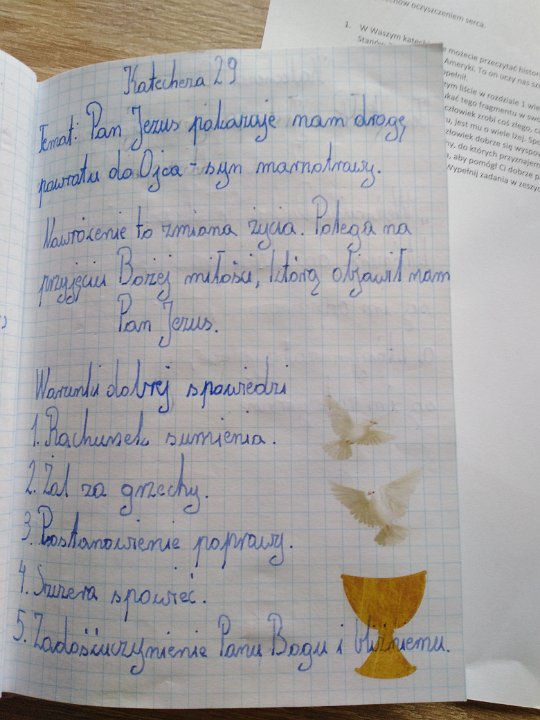 Katecheza 29
Temat: Pan Jezus pokazuje nam drogę
powrotu do Ojca - syn marnotrawy.
Nawrócenie to zmiana życia. Polega na
przyjęciu Bożej miłości, którą objawił nam
Pan Jezus.
Warunki dobrej spowiedzi
1. Rachunek sumienia.
2. Żal za grzechy.
3. Postanowienie poprawy.
4. Szczera spowieć.
5. Zadośćuczynienie Panu Bogu i bliźniemu.
oczyszczeniem serca.
1. W Waszym
możecie przeczytać
Ameryki. To on uczy nas
liście w rozdziale 1
tego fragmentu w
człowiek zrobi coś złego,
Jest mu o wiele lżej.
człowiek dobrze się
do których przyznajem
aby pomógł Ci dobrze
Wypełnij zadania w